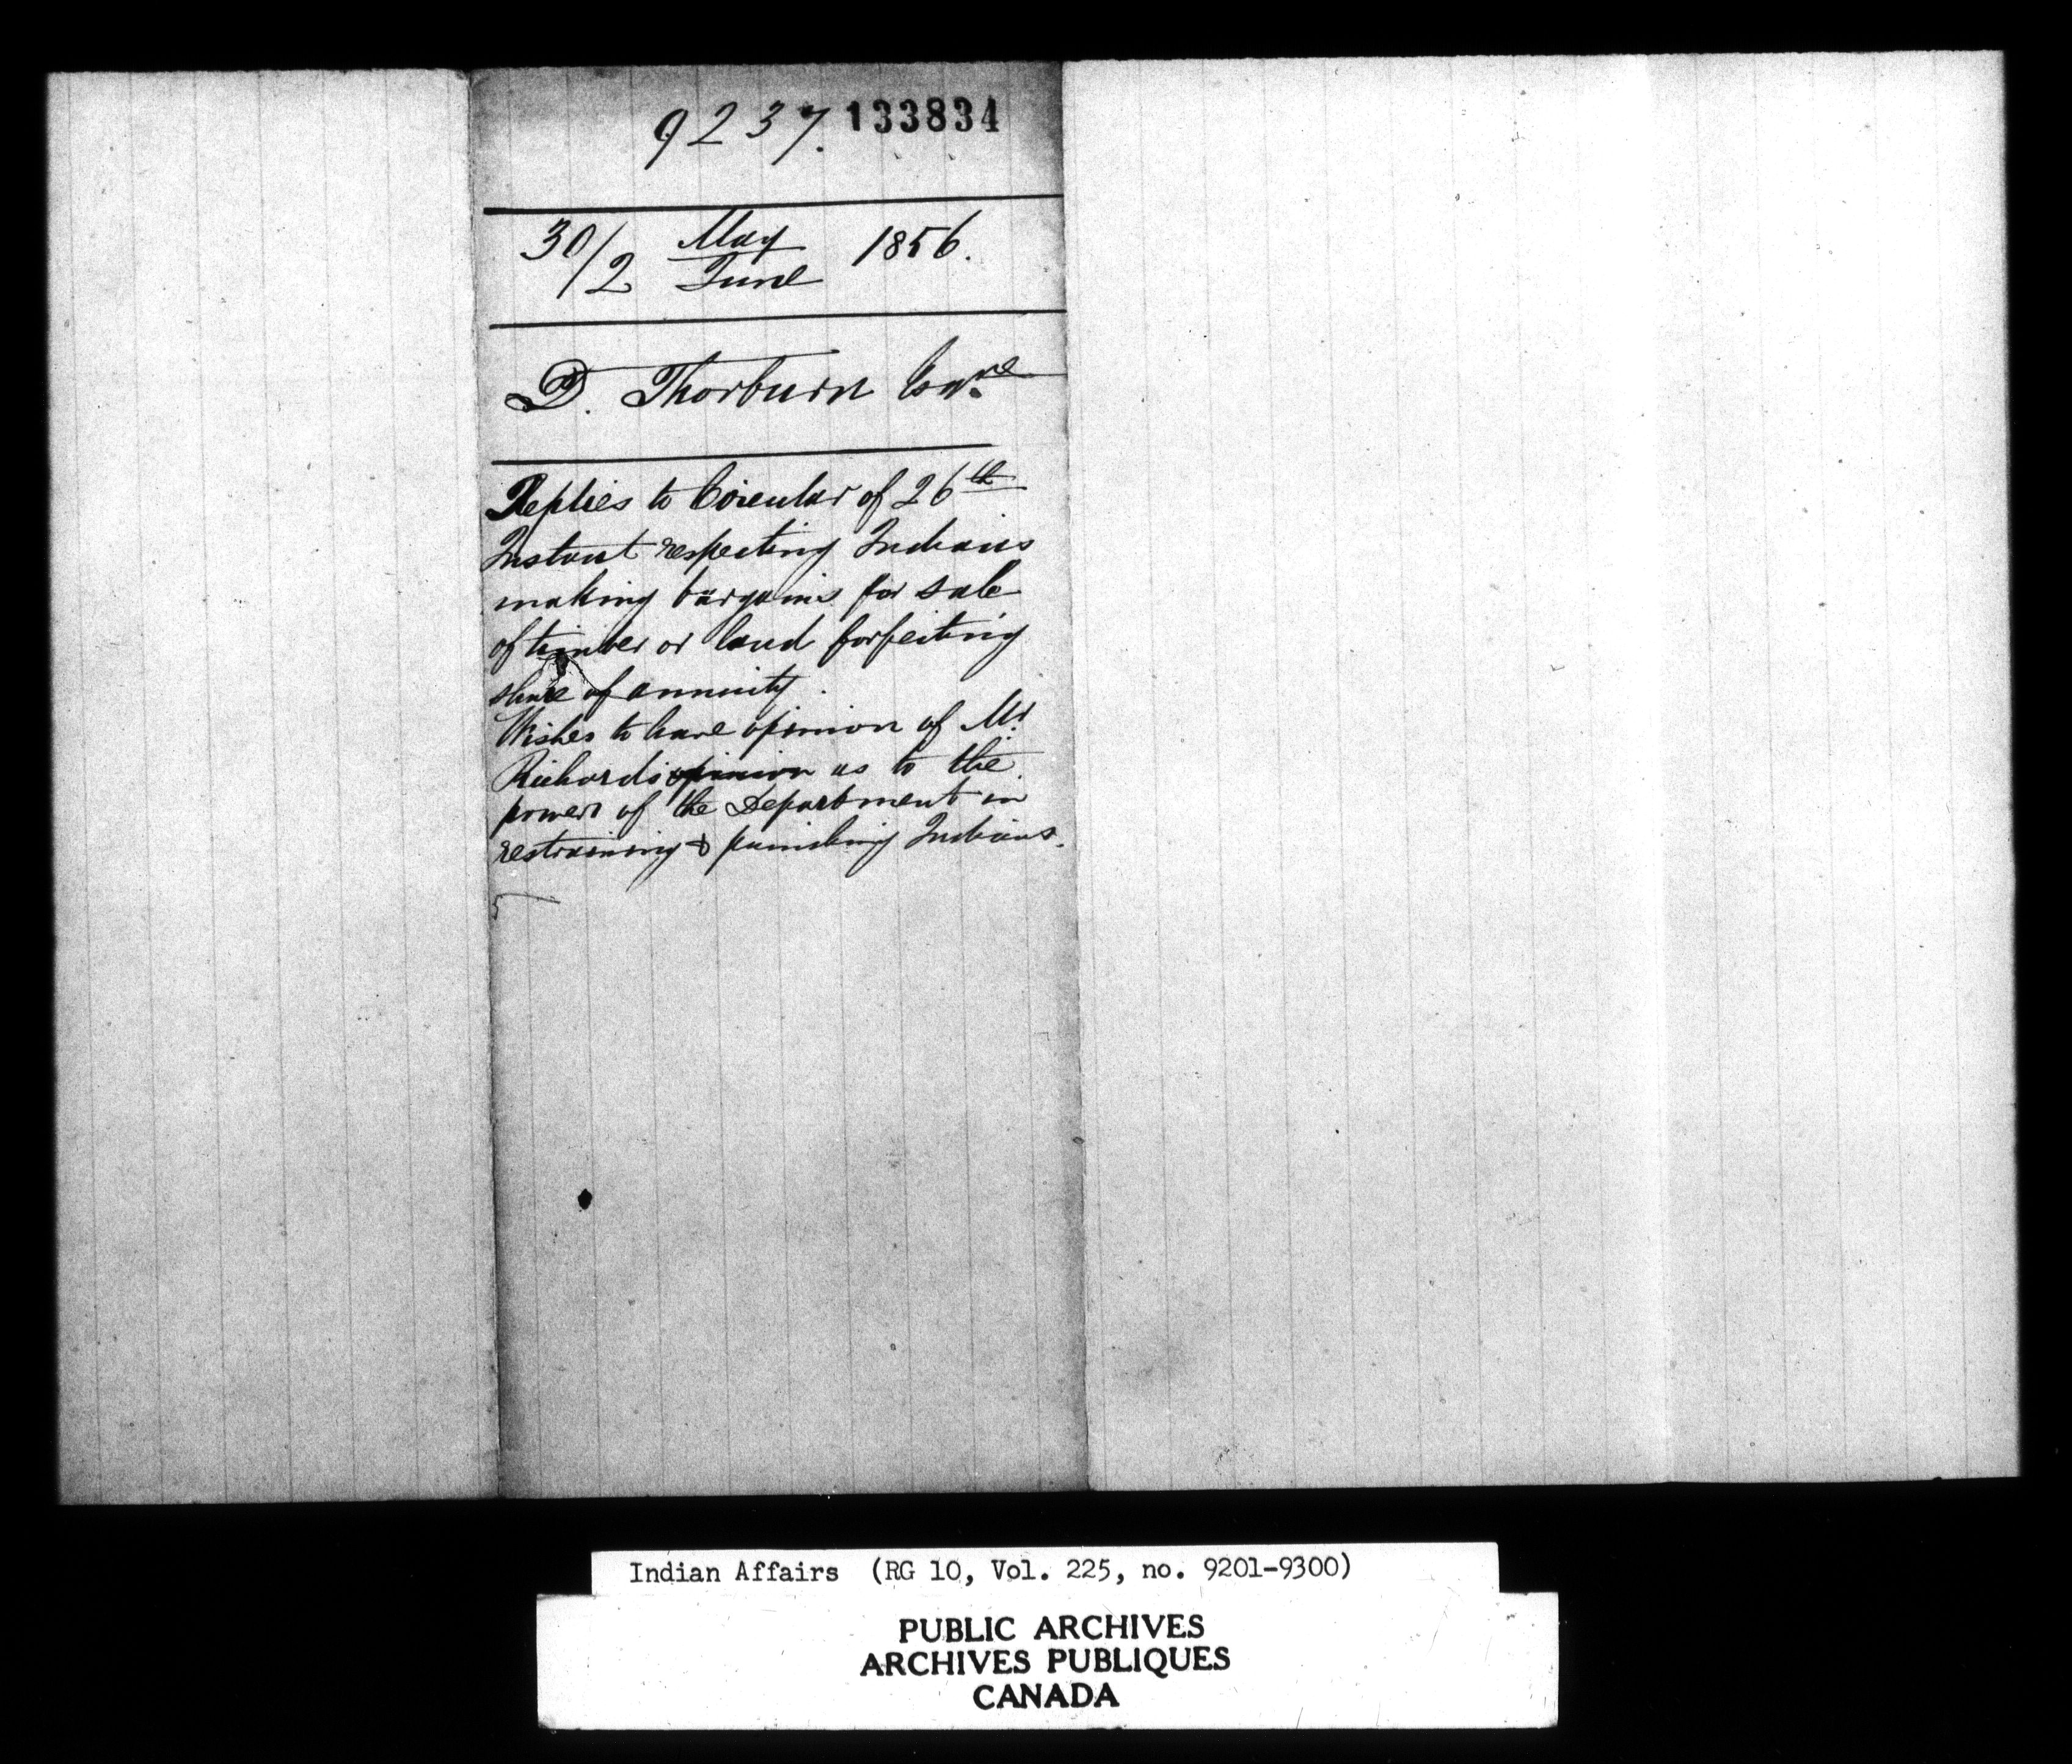 9237. 133834
30/2 May June 1856.
D. Thorburn Esqre
Replies to Circular of 26th
Instant respecting Indians
making bargains for sale
of timber or land forfeiting
share of annuity.
Wishes to have opinion of Mr
Richards opinion as to the
power of the Department in
restraining & punishing Indians.
Indian Affairs (RG 10, Vol. 225, no. 9201-9300)
PUBLIC ARCHIVES
ARCHIVES PUBLIQUES
CANADA